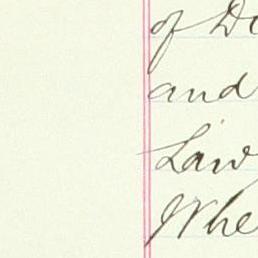 of De
and
Law
Whe